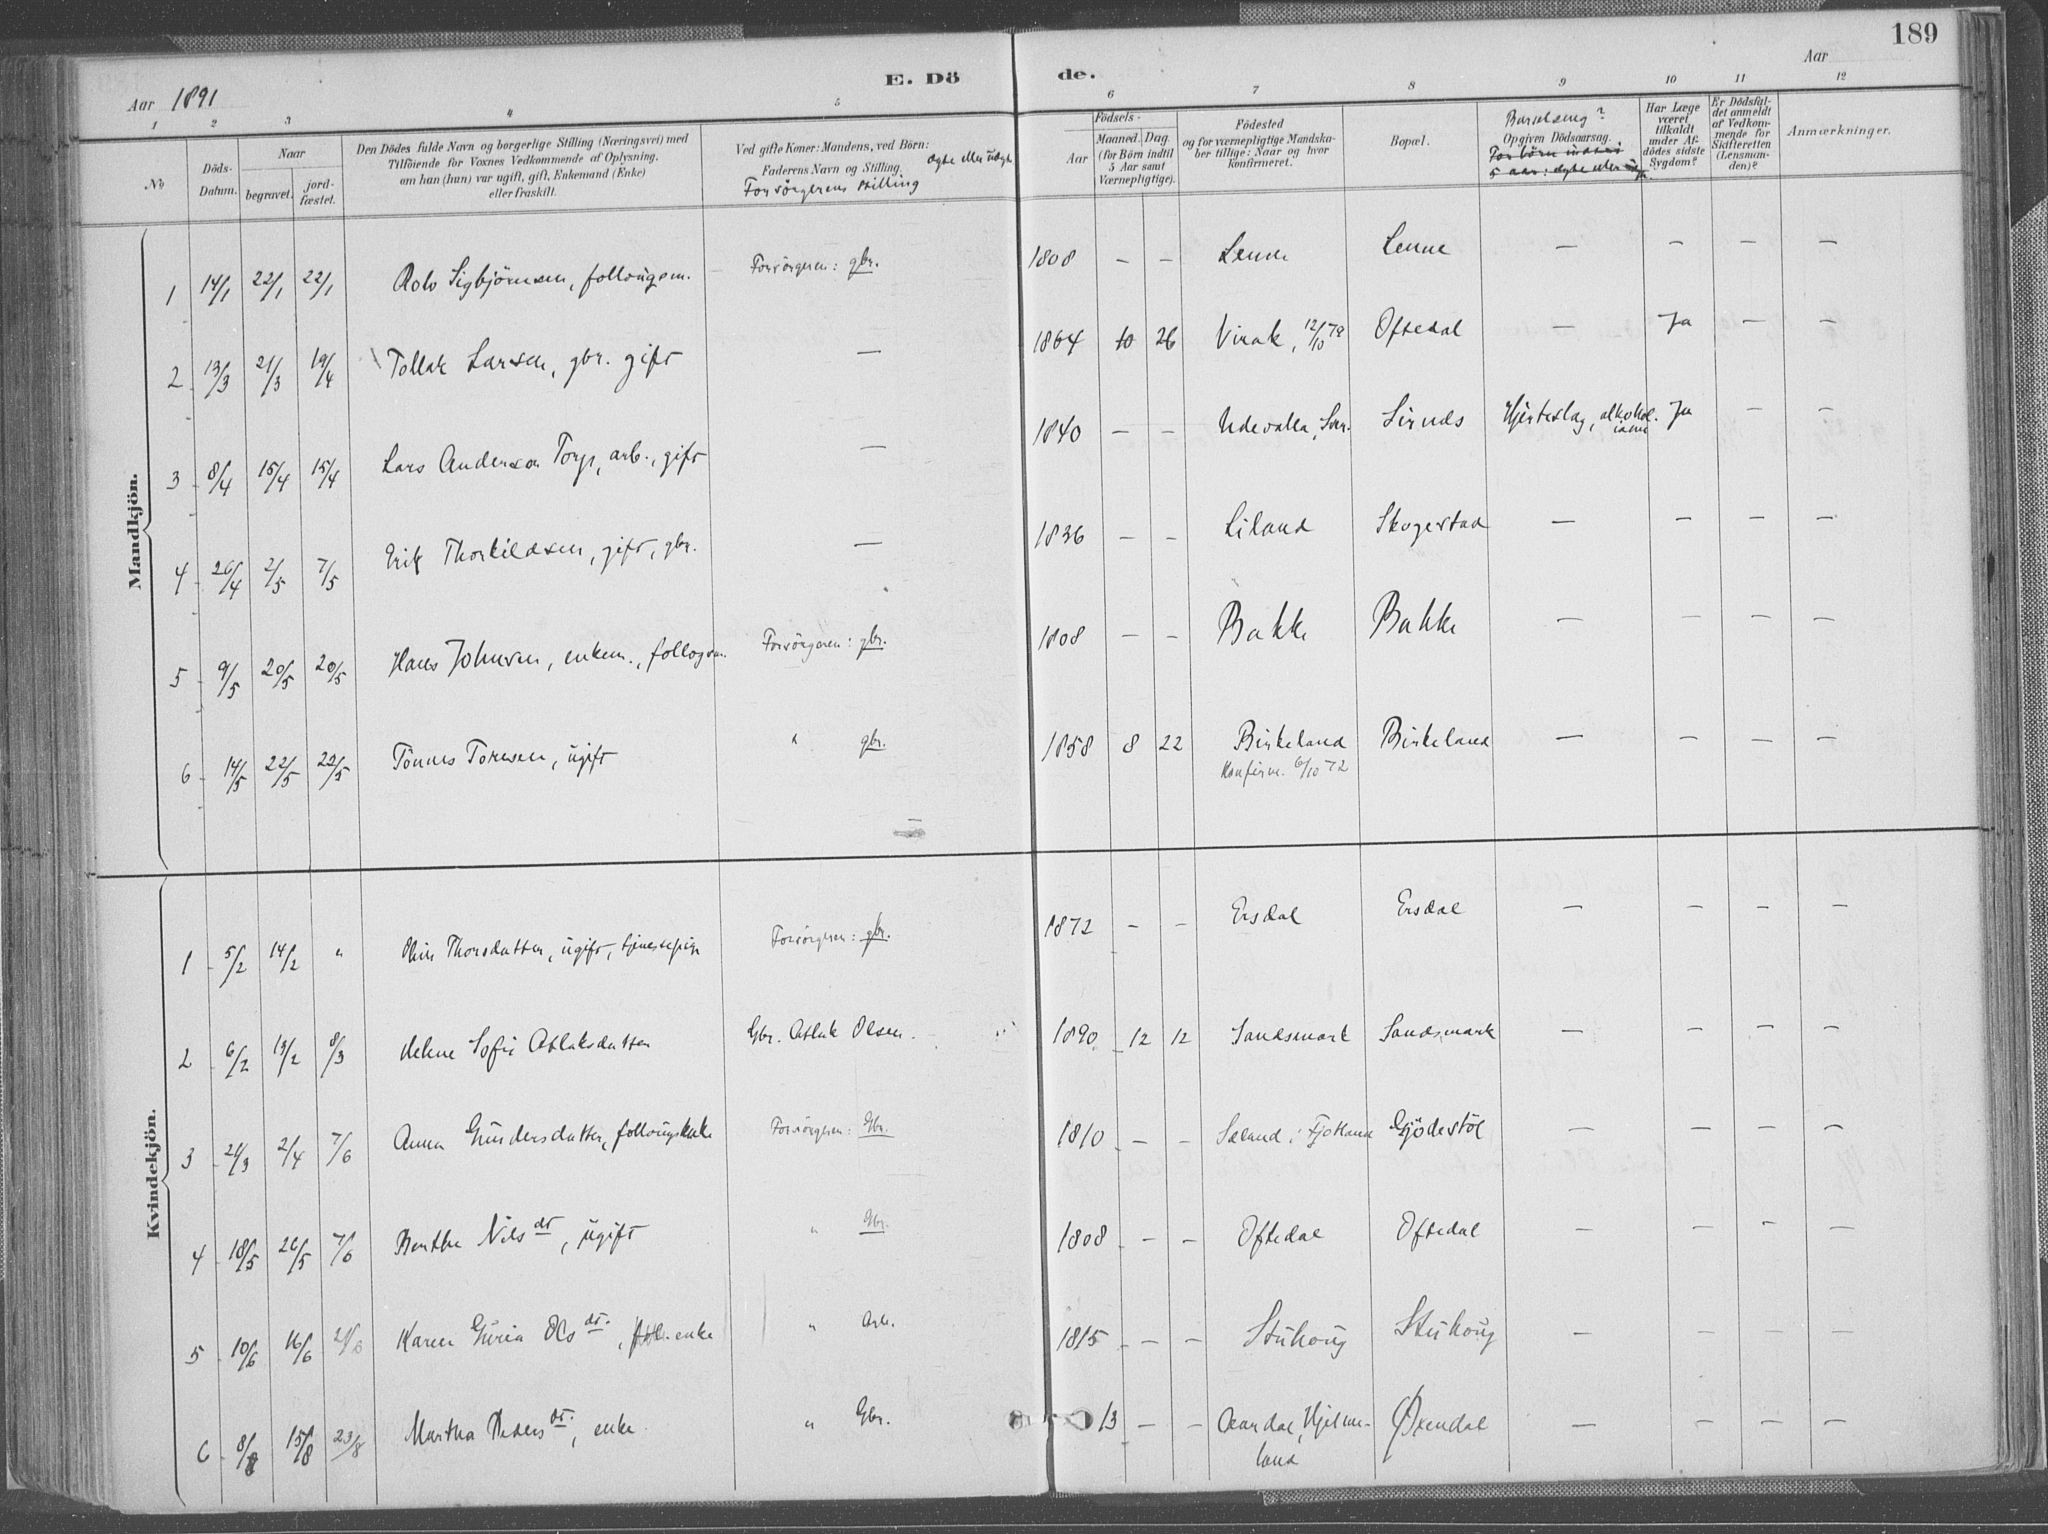 189
Aar 1891
E. Dö
de.
Aar
1 2 3 4 5 6 7 8 9 10 11 12
No
Döds-
Datum.
Naar
begravet.
jord-
fæstet.
Den Dödes fulde Navn og borgerlige Stilling (Næringsvei) med
Tilföiende for Voxnes Vedkommende af Oplysning,
om han (hun) var ugift, gift, Enkemand (Enke)
eller fraskilt.
Ved gifte Koner: Mandens, ved Börn:
Faderens Navn og Stilling.
ægte eller uægte
Forsörgerens stilling
Födsels-
Aar
Maaned. Dag.
(for Börn indtil
5 Aar samt
Værnepligtige).
Födested
og for værnepligtige Mandska-
ber tillige: Naar og hvor
konfirmeret.
Bopæl.
Barselseng?
Opgiven Dödsaarsag.
For börn indtil
5 aar: ægte eller
Har Læge
været
tilkaldt
under Af-
dödes sidste
Sygdom?
Er Dödsfal-
det anmeldt
af Vedkom-
mende for
Skifteretten
(Lensman-
den)?
Anmærkninger.
Mandkjön.
1 14/1 22/1 22/1 Rolv Sigbjörnsen, follougsm. Forsörgeren: gbr. 1808 — — Lenne Lenne — — — —
2 13/3 21/3 19/4 Tollak Larsen, gbr. gift — 1864 10 26 Virak, 12/10 79 Oftedal — Ja — —
3 8/4 15/4 15/4 Lars Anderson Torp, arb., gift — 1840 — — Udevalla, Sver. Sirnes Hjerteslag, alkohol-
isme Ja — —
4 26/4 2/5 7/5 Erik Thorkildsen, gift, gbr. — 1836 — — Liland Skogestad — — — —
5 9/5 20/5 20/5 Hans Johnsen, enkem., follogsm. Forsörgeren: gbr. 1808 — — Bakke Bakke — — — —
6 14/5 22/5 22/5 Tönnes Toresen, ugift " gbr. 1858 8 22 Birkeland Birkeland — — — —
Konfirm. 6/10 72
Kvindekjön.
1 5/2 14/2 " Thorsdatter, ugift, tjenestepige Forsörgeren: gbr. 1872 — — Ersdal Ersdal — — — —
2 6/2 13/2 8/3 Helene Sofie Atlaksdatter Gbr. Atlak Olsen. 1890 12 12 Sandsmark Sandsmark — — — —
3 21/3 2/4 7/6 Anna Gundersdatter, follougskake Forsörgeren: Gbr. 1810 — — Sæland i Fjotland Gjödestöl — — — —
4 18/5 26/5 7/6 Benthe Nilsdt, ugift " Gbr. 1808 — — Oftedal Oftedal — — — —
5 10/6 16/6 Karen Guria Olsdt., fol. enke " Arb. 1815 — — Stuhoug Stuhoug — — — —
6 8/8 15/8 23/8 Martha Pedersdt., enke. " Gbr. 13 — — Aardal, Hjelme-
land Øxendal — — — —